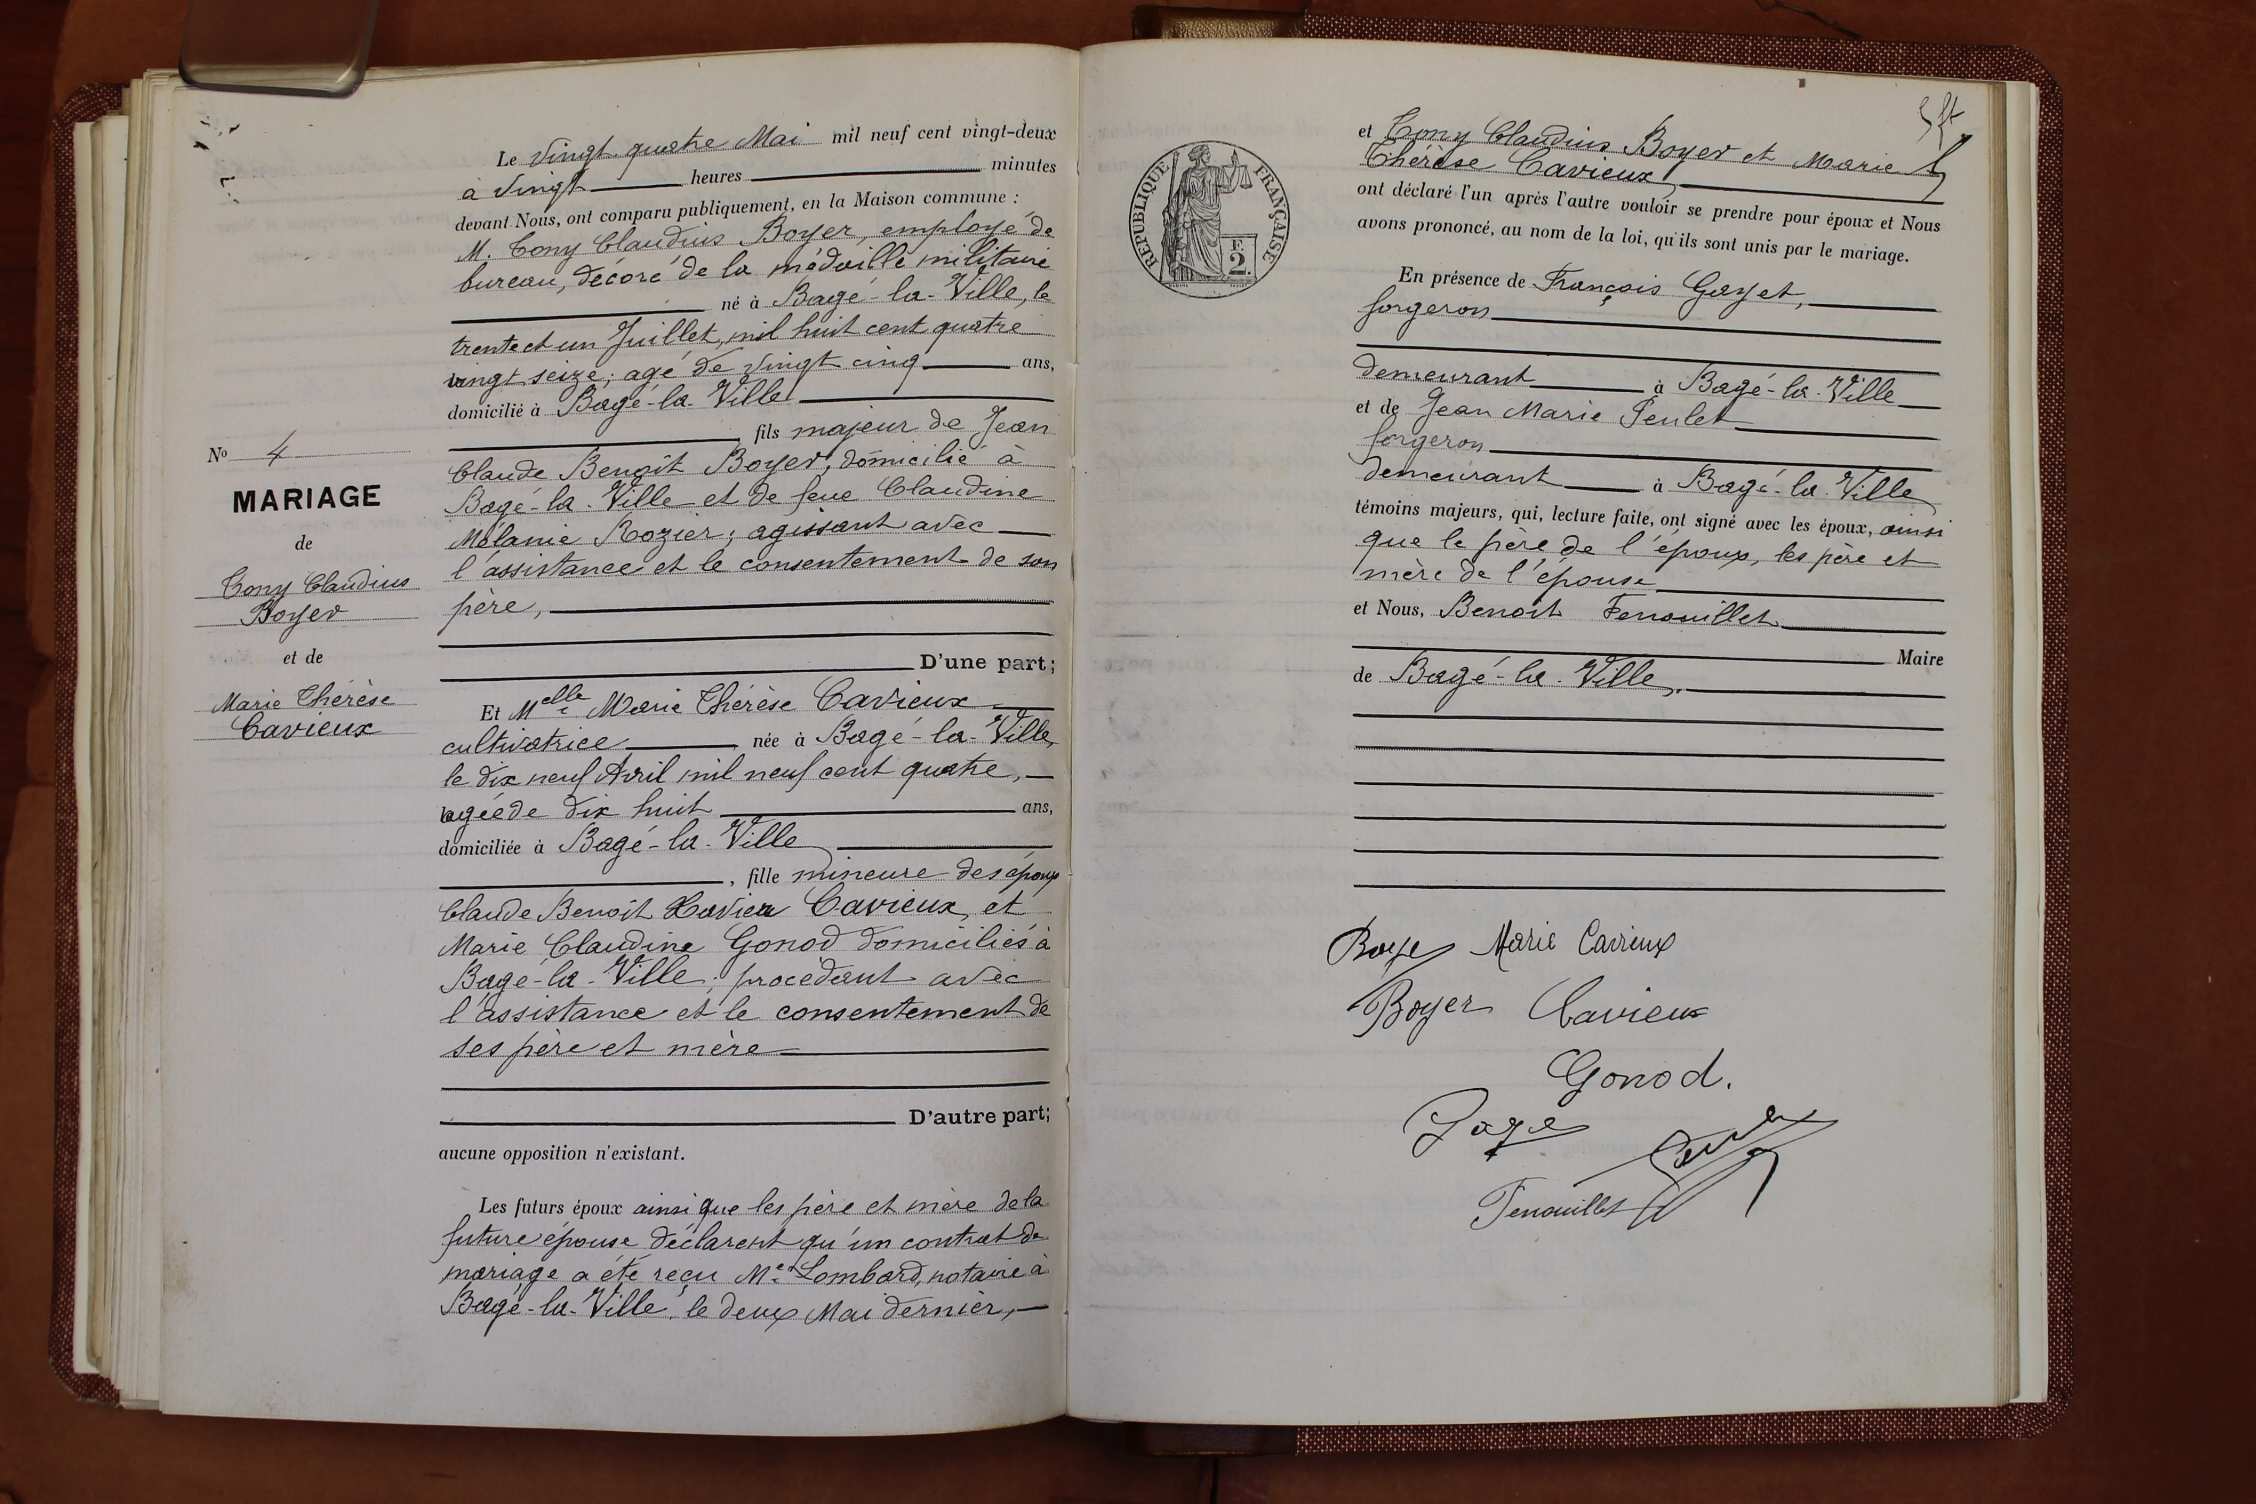 Le vingt quatre Mai mil neuf cent vingt-deux
à vingt heures minutes
devant Nous, ont comparu publiquement, en la Maison commune :
M. Tony Claudius Boyer, employé de
bureau, décoré de la médaille militaire
né à Bagé-la-Ville, le
trente et un Juillet, mil huit cent quatre
vingt seize; agé de vingt cinq ans,
domicilié à Bagé-la-Ville
fils majeur de Jean
Claude Benoît Boyer, domicilié à
Bagé-la-Ville et de feue Claudine
Mélanie Rozier; agissant avec
l'assistance et le consentement de son
père,
D'une part;
Nº 4
MARIAGE
de
Tony Claudius
Boyer
et de
Marie Thérèse
Cavieux
Et Melle Marie Thérèse Cavieux
cultivatrice née à Bagé-la-Ville,
le dix neuf Avril mil neuf cent quatre,
agée de dix huit ans,
domiciliée à Bagé-la-Ville
, fille mineure des époux
Claude Benoît Xavier Cavieux, et
Marie Claudine Gonod domiciliés à
Bagé-la-Ville; procédant avec
l'assistance et le consentement de
ses père et mère
D'autre part;
aucune opposition n'existant.
Les futurs époux ainsi que les père et mère de la
future épouse déclarent qu'un contrat de
mariage a été reçu Me Lombard, notaire à
Bagé-la-Ville, le deux Mai dernier,
RÉPUBLIQUE FRANÇAISE
F.
2.
et Tony Claudius Boyer et Marie
Thérèse Cavieux
ont déclaré l'un après l'autre vouloir se prendre pour époux et Nous
avons prononcé, au nom de la loi, qu'ils sont unis par le mariage.
En présence de François Gayet,
forgeron
demeurant à Bagé-la-Ville
et de Jean Marie Penlet
forgeron
demeurant à Bagé-la-Ville
témoins majeurs, qui, lecture faite, ont signé avec les époux, ainsi
que le père de l'époux, les père et
mère de l'épouse
et Nous, Benoît Fenouillet
Maire
de Bagé-la-Ville.
Boye Marie Cavieux
Boyer Cavieux
Gonod.
Fenouillet